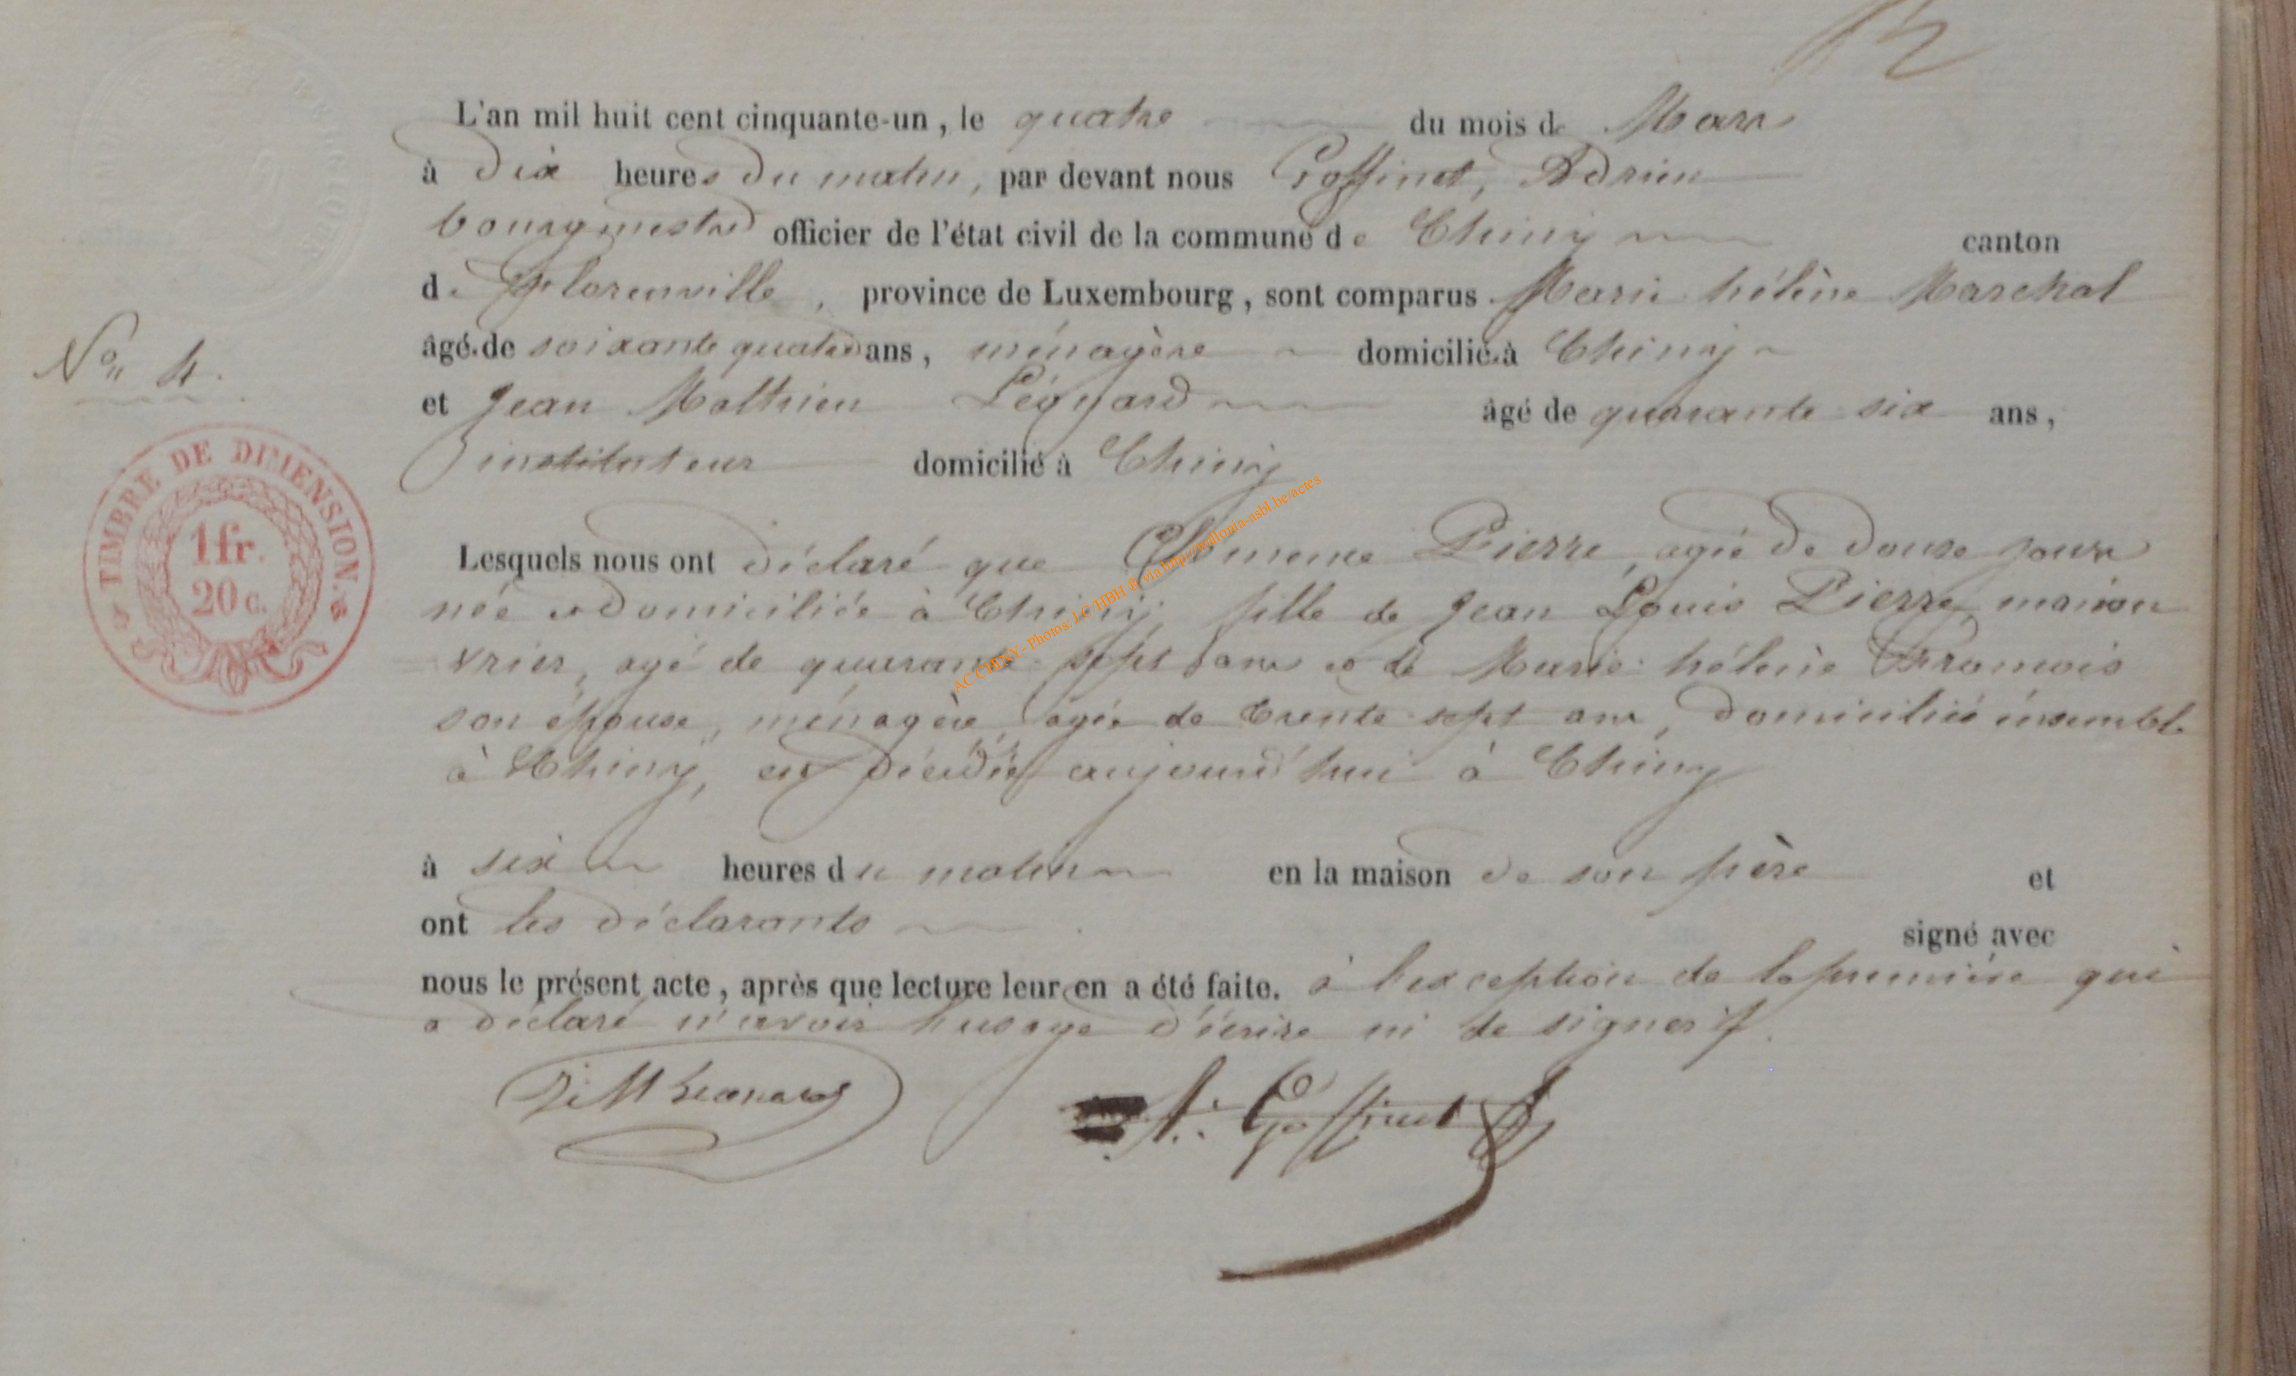 L'an mil huit cent cinquante-un, le quatre du mois de Mars
à dix heures du matin, par devant nous Goffinet, Adrien
bourgmestre officier de l'état civil de la commune de Chiny canton
de Florenville, province de Luxembourg, sont comparus Marie hélène Marchal
âgé.de soixante quatre ans, ménagère domiciliée à Chiny
No 4.
et Jean Mathieu Léonard âgé de quarante six ans,
instituteur domicilié à Chiny
TIMBRE DE DIMENSION.
1 fr.
20 c.
Lesquels nous ont déclaré que Clémence Pierre, agée de douze jours
née et domiciliée à Chiny, fille de Jean Louis Pierre, manou
vrier, agé de quarante sept ans et de Marie hélène François
son épouse, ménagère, agée de trente sept ans, domiciliés ensemble
à Chiny, est décédée aujourd'hui à Chiny
à six heures du matin en la maison de son père et
ont les déclarants signé avec
nous le présent acte, après que lecture leur en a été faite. à l'exception de la première qui
a déclaré n'avoir l'usage d'écrire ni de signer
J. M Leonard A. Goffinet